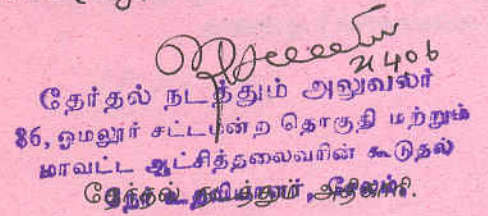 21406
தேர்தல் நடத்தும் அலுவலர்
86, ஓமலூர் சட்டமன்ற தொகுதி மற்றும்
மாவட்ட ஆட்சித்தலைவரின் கூடுதல்